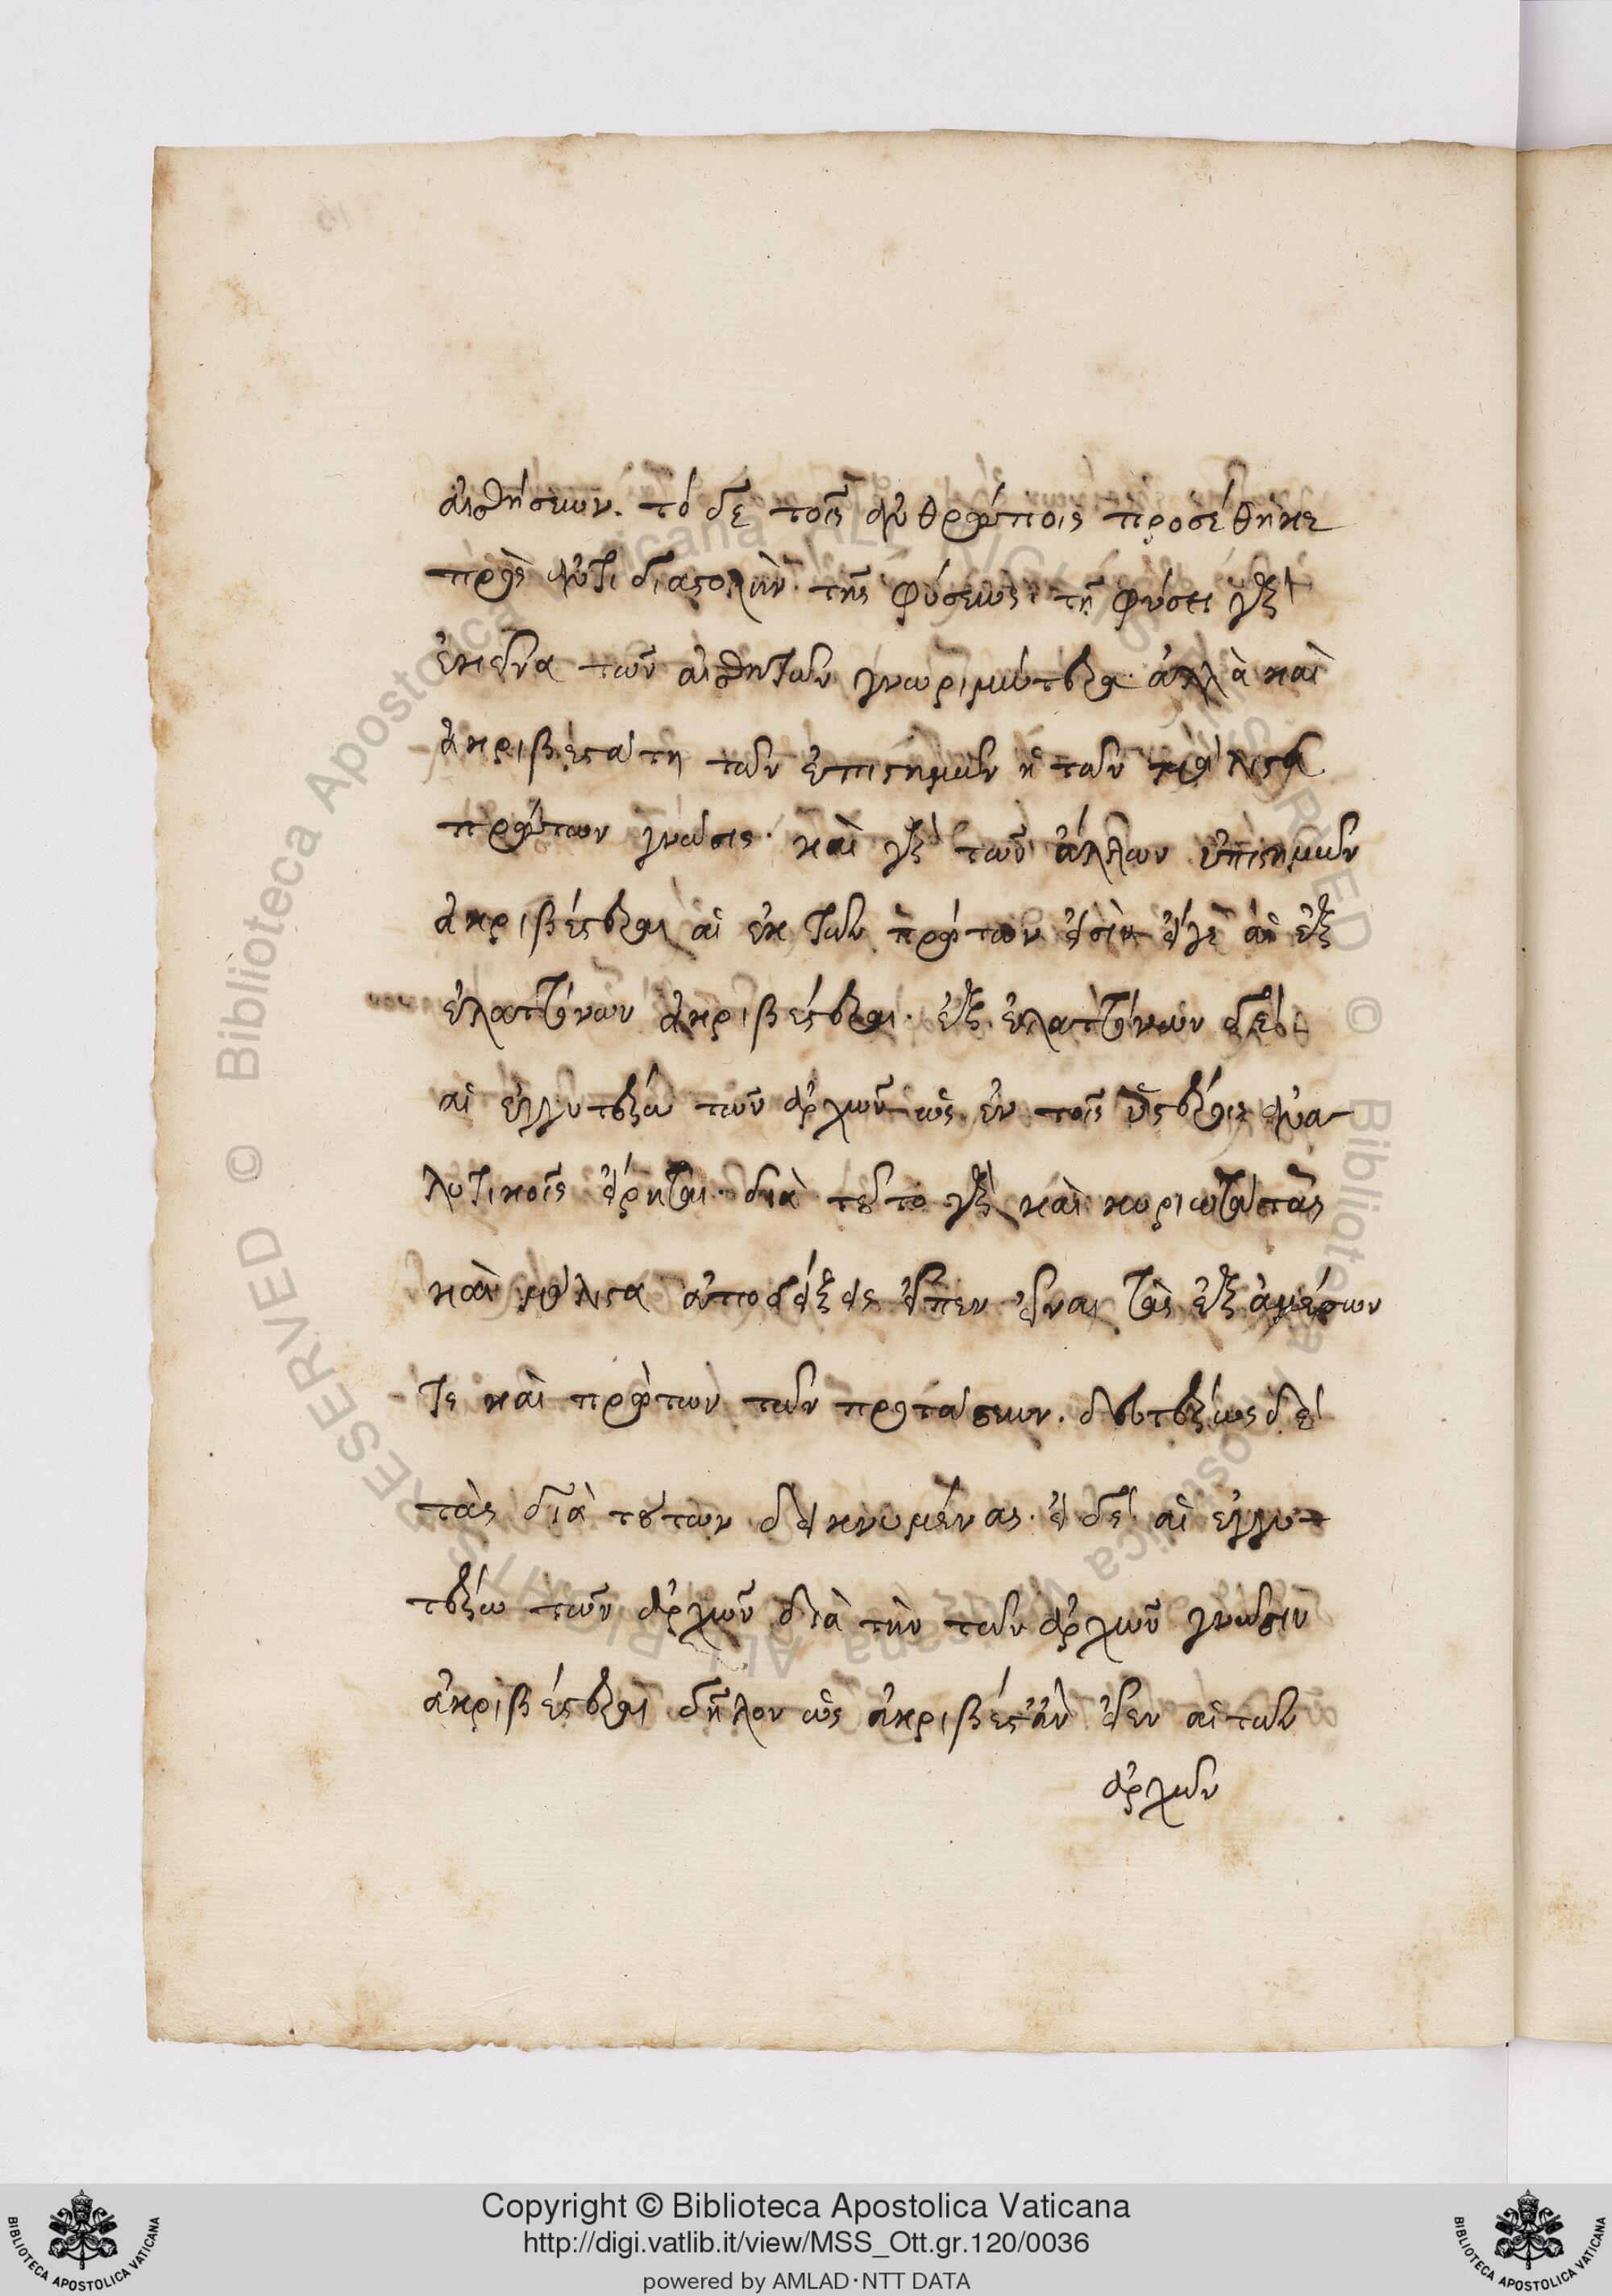 αἰσθήσεων. τὸ δὲ τοῖς ἀνθρώποις προσέθηκε
πρὸς ἀντιδιαστολὴν τῆς φύσεως· τῇ φύσει γὰρ
ἐκεῖνα τῶν αἰσθητῶν γνωριμώτερα· ἀλλὰ καὶ
ἀκριβεστάτη τῶν ἐπιστημῶν ἡ τῶν μάλιστα
πρώτων γνῶσις· καὶ γὰρ τῶν ἄλλων ἐπιστημῶν
ἀκριβέστεραι αἱ ἐκ τῶν πρώτων εἰσὶν εἴγε αἱ ἐξ
ἐλαττόνων ἀκριβέστεραι. ἐξ ἐλαττόνων δὲ
αἱ ἐγγυτέρω τῶν ἀρχῶν ὡς ἐν τοῖς ὑστέροις ἀνα-
λυτικοῖς εἴρηται· διὰ τοῦτο γὰρ καὶ κυριωτάτας
καὶ μάλιστα ἀποδείξεις εἶπεν εἶναι τὰς ἐξ ἀμέσων
τε καὶ πρώτων τῶν προτάσεων. δευτέρως δὲ
τὰς διὰ τούτων δεικνυμένας. εἰ δὲ αἱ ἐγγυ-
τέρω τῶν ἀρχῶν διὰ τὴν τῶν ἀρχῶν γνῶσιν
ἀκριβέστεραι δῆλον ὡς ἀκριβέστ' ἂν εἶεν αἱ τῶν
ἀρχῶν
Copyright © Biblioteca Apostolica Vaticana
http://digi.vatlib.it/view/MSS_Ott.gr.120/0036
powered by AMLAD·NTT DATA
BIBLIOTECA APOSTOLICA VATICANA
BIBLIOTECA APOSTOLICA VATICANA
© Biblioteca Apostolica Vaticana ALL RIGHTS RESERVED
© Biblioteca Apostolica Vaticana ALL RIGHTS RESERVED